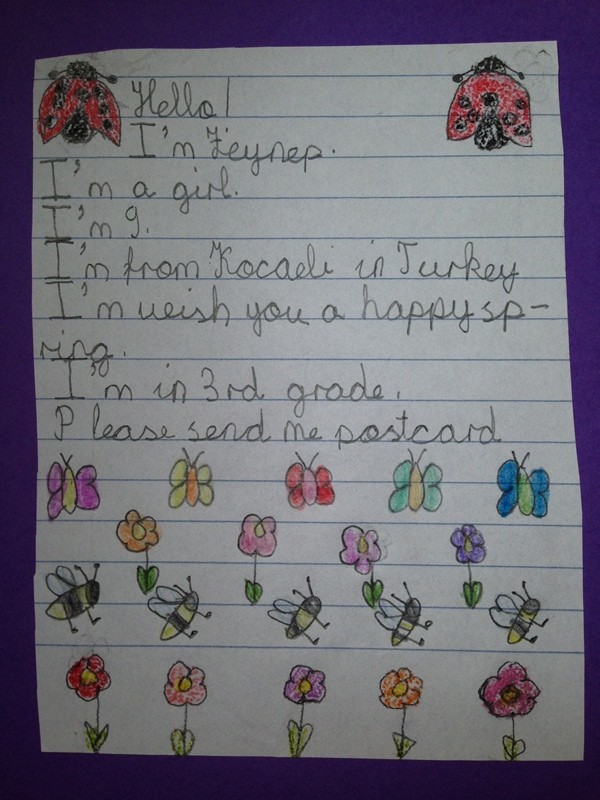 Hello!
I'm Zeynep.
I'm a girl.
I'm 9.
I'm from Kocaeli in Turkey
I'm weish you a happy sp-
ring.
I'm in 3rd grade.
Please send me postcard